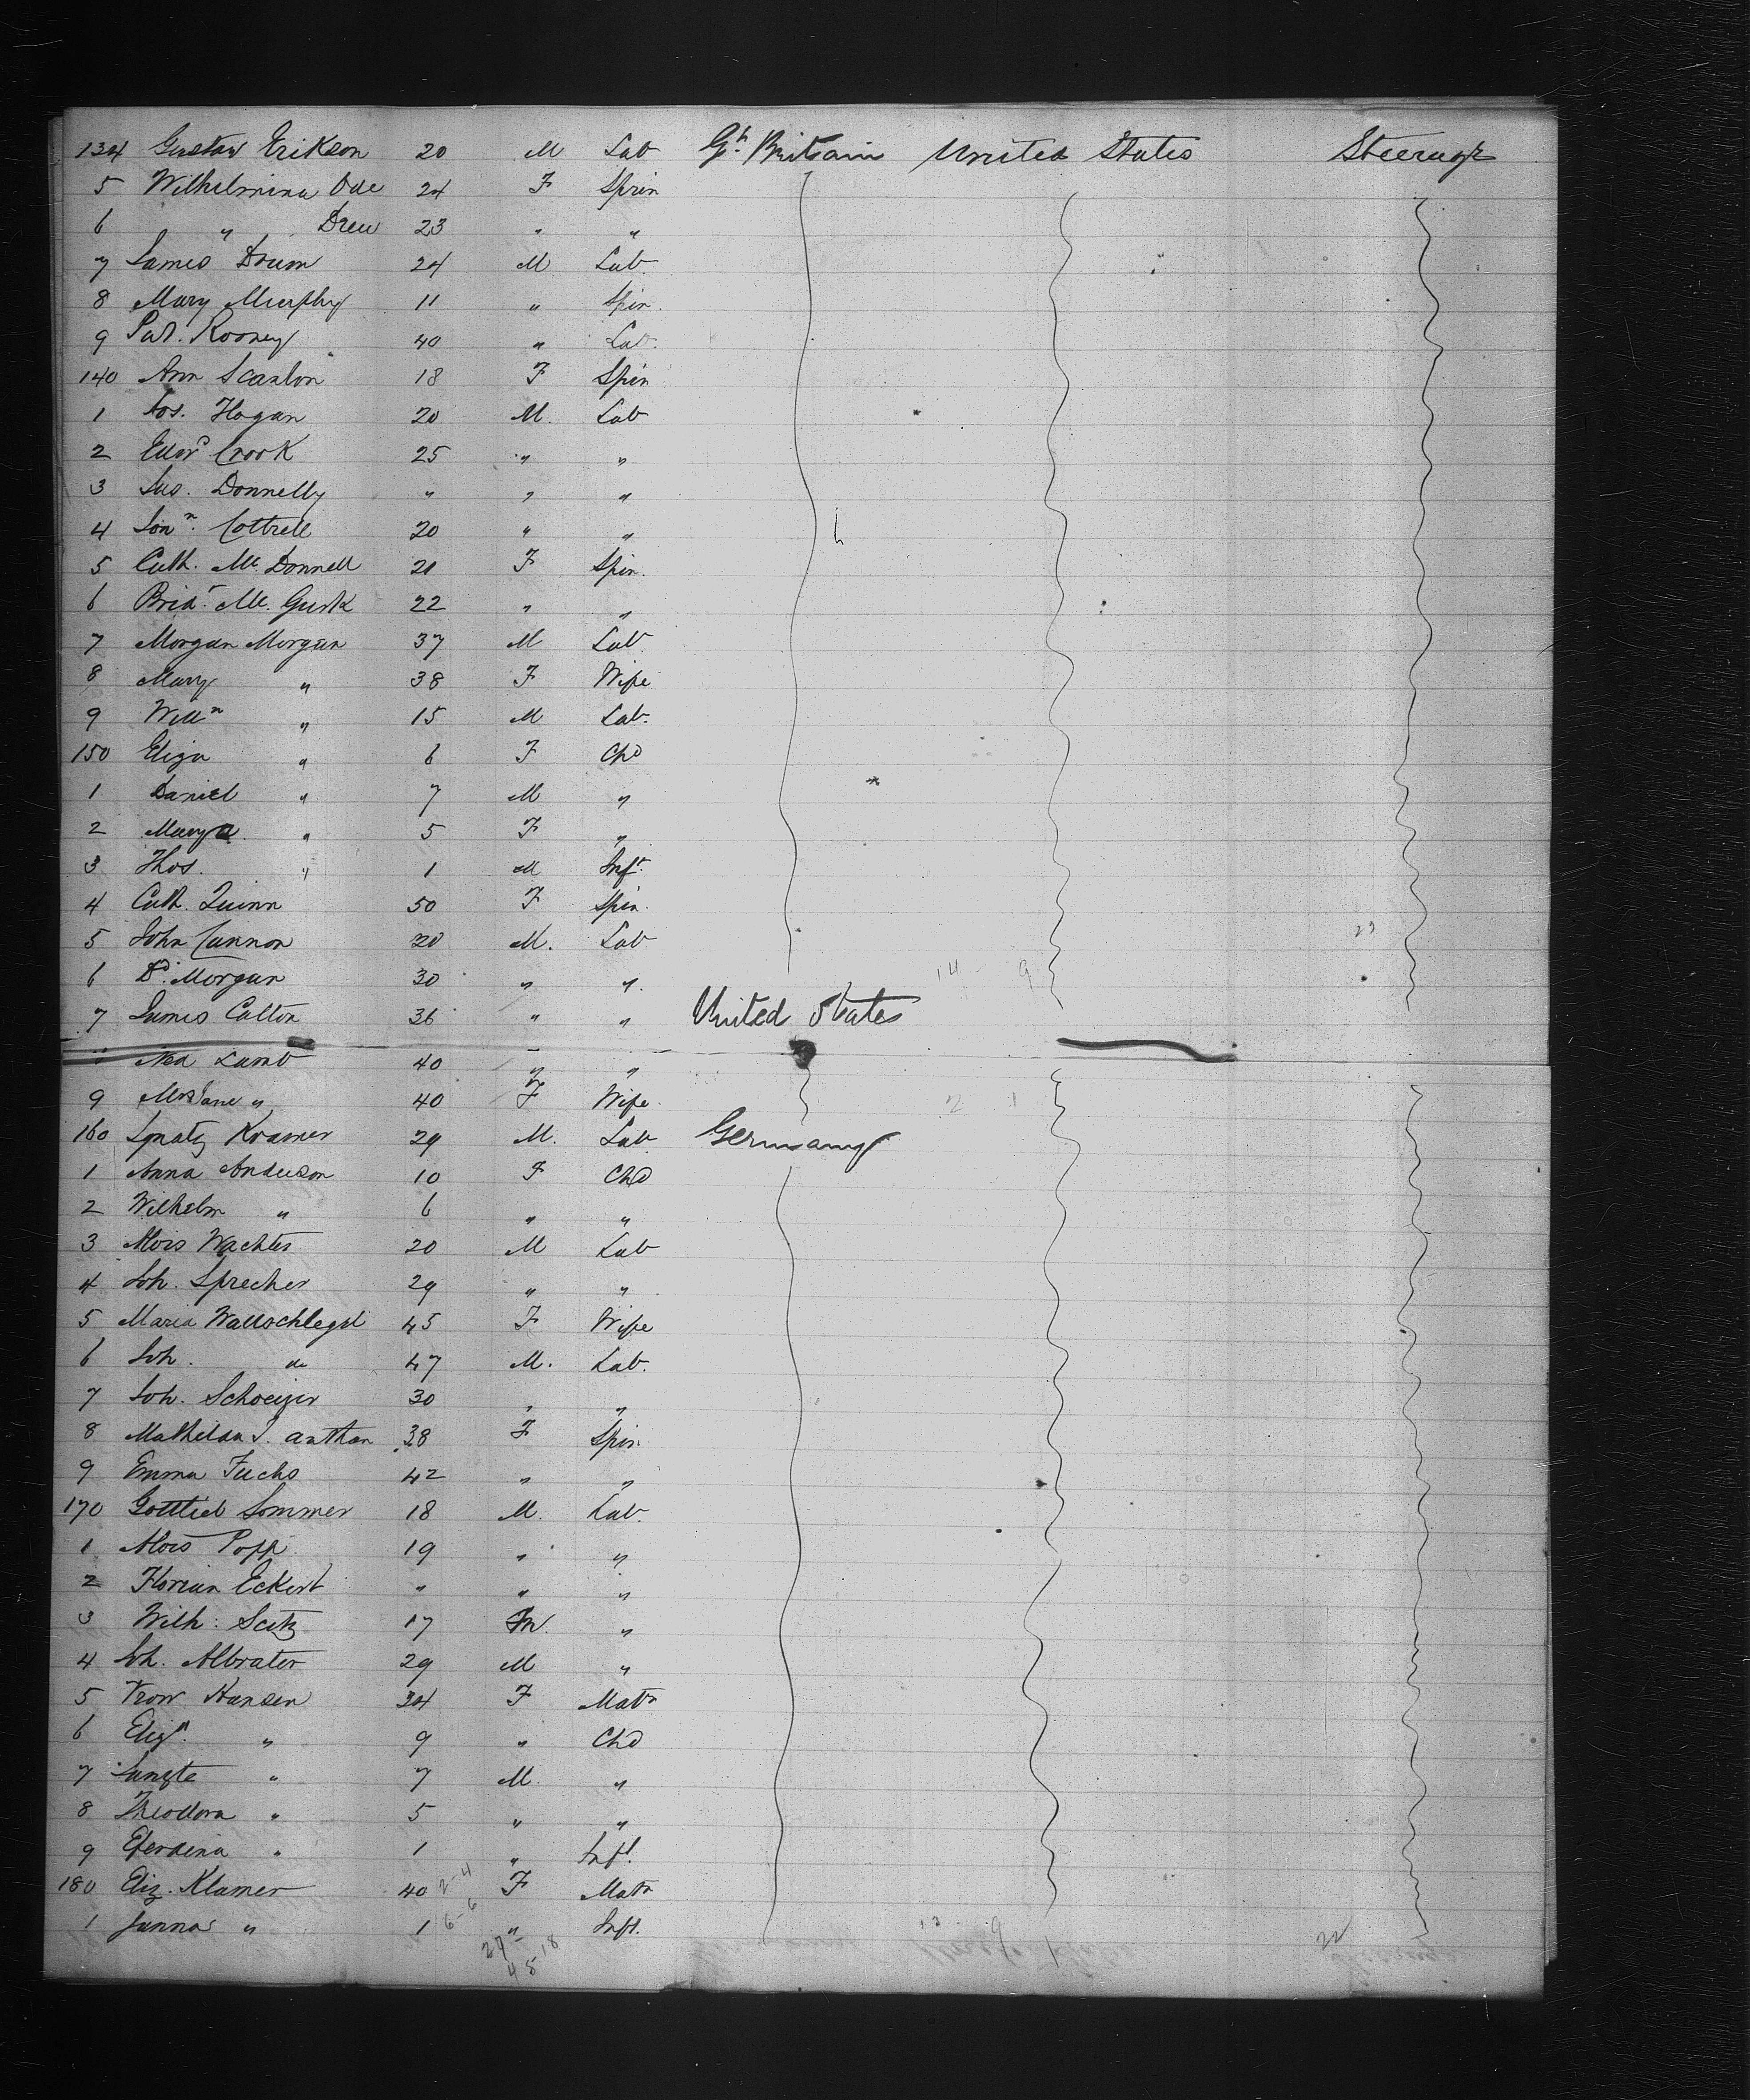 134 Gustav Erikson 20 M Lab Gt. Britain United States Steerage
5 Wilhelmina Ode 24 F Spin
6 " Drew 23 " "
7 James Drum 24 M Lab
8 Mary Murphy 11 " Spin.
9 Pat. Rooney 40 " Lab.
140 Ann Scanlon 18 F Spin
1 Jos. Hogan 20 M. Lab
2 Edwd Crook 25 " "
3 Jas. Donnelly " " "
4 Cottrell 20 " "
5 Cath. Mc. Donnell 21 F Spin.
6 Bridt. Mc. Gurk 22 " "
7 Morgan Morgan 37 M Lab
8 Mary " 38 F Wife
9 Willm " 15 M Lab.
150 Eliza " 6 F Chd
1 Daniel " 7 M "
2 Mary a. " 5 F "
3 Thos. " 1 M Inft.
4 Cath. Quinn 50 F Spin.
5 John Cannon 20 M. Lab 23
6 Dd. Morgan 30 " " 14 - 9
7 James Colton 36 " " United States
Ned Lamb 40 " "
9 Mrs Jane " 40 F Wife 2 1
160 Ignatz Kramer 29 M. Lab Germany
1 Anna Anderson 10 F Chd
2 Wilhelm " 6 " "
3 Alois Wachter 20 M Lab
4 Joh. Sprecher 29 " "
5 Maria Wallschlegel 45 F Wife
6 Joh. do 47 M. Lab.
7 Joh. Schoeizer 30 " "
8 Mathilda J. anthan 38 F Spin
9 Emma Fuchs 42 " "
170 Gottlieb Sommer 18 M. Lab.
1 Alois Popp 19 " "
2 Florian Eckert " " "
3 Wilh: Seitz 17 M. "
4 Joh. Albrater 29 M "
5 Vrow Hansen 34 F Matn
6 Elizh. " 9 " Chd
7 " 7 M. "
8 Theodora " 5 " "
9 " 1 " Inft.
180 Eliz. Klamer 40 2-4 F Matn
1 Janna " 1 6-6 " Inft. 13 - 9 22
27 - 18
45